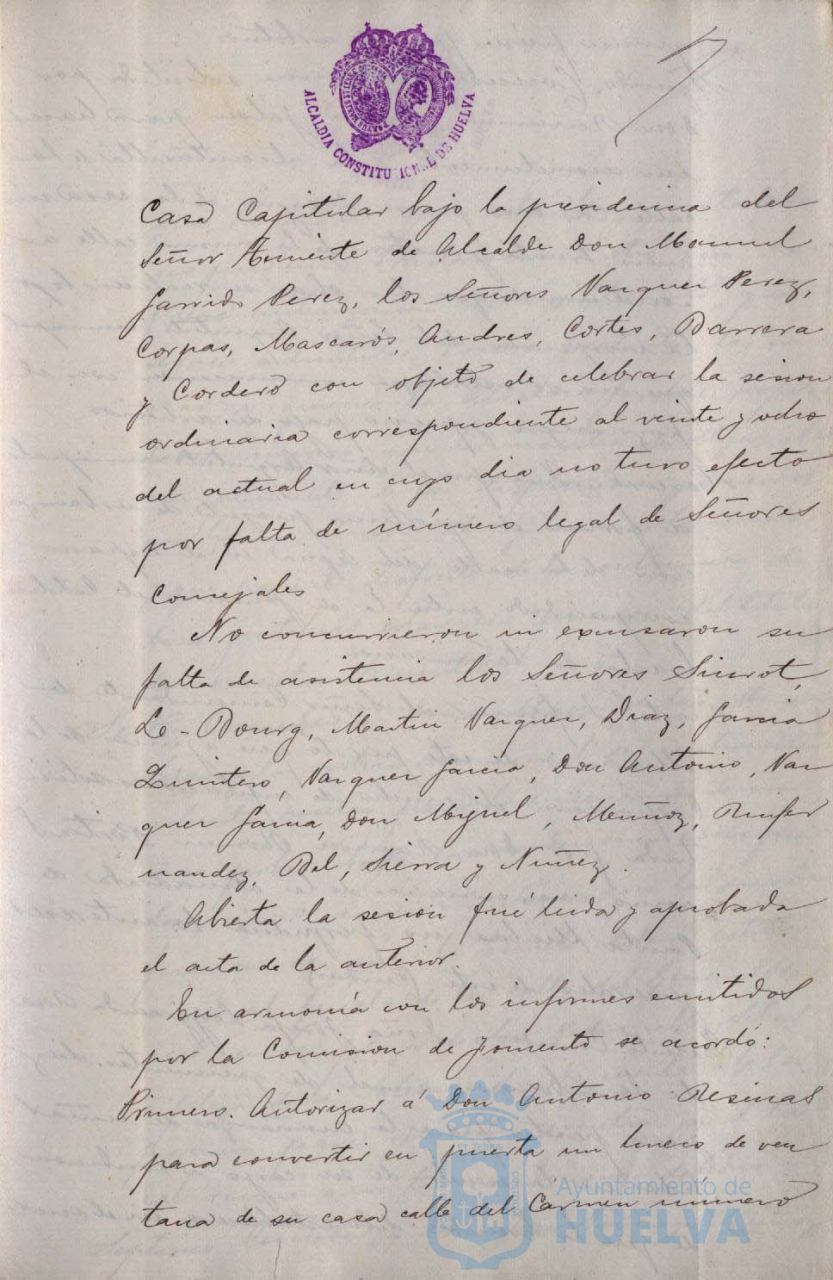 ALCALDIA CONSTITUCIONAL DE HUELVA
Casa Capitular bajo la presidencia del
Señor Teniente de Alcalde Don Manuel
Garrido Perez, los Señores Vazquez Perez,
Corpas, Mascarós, Andres, Cortés, Barrera
y Cordero con objeto de celebrar la sesion
ordinaria correspondiente al veinte y ocho
del actual en cuyo dia no tuvo efecto
por falta de número legal de Señores
Concejales
No concurrieron ni excusaron su
falta de asistencia los Señores Siurot,
Le-Bourg, Martin Vazquez, Diaz, Garcia
Quintero, Vazquez Garcia, Don Antonio, Vaz
quez Garcia, Don Miguel, Muñoz,
nandez, Bel, Sierra y Nuñez.
Abierta la sesion fué leida y aprobada
el acta de la anterior.
En armonía con los informes emitidos
por la Comision de Fomento se acordó:
Primero. Autorizar á Don Antonio Resinas
para convertir en puerta un hueco de ven
tana de su casa calle del Cármen número
Ayuntamiento de
HUELVA